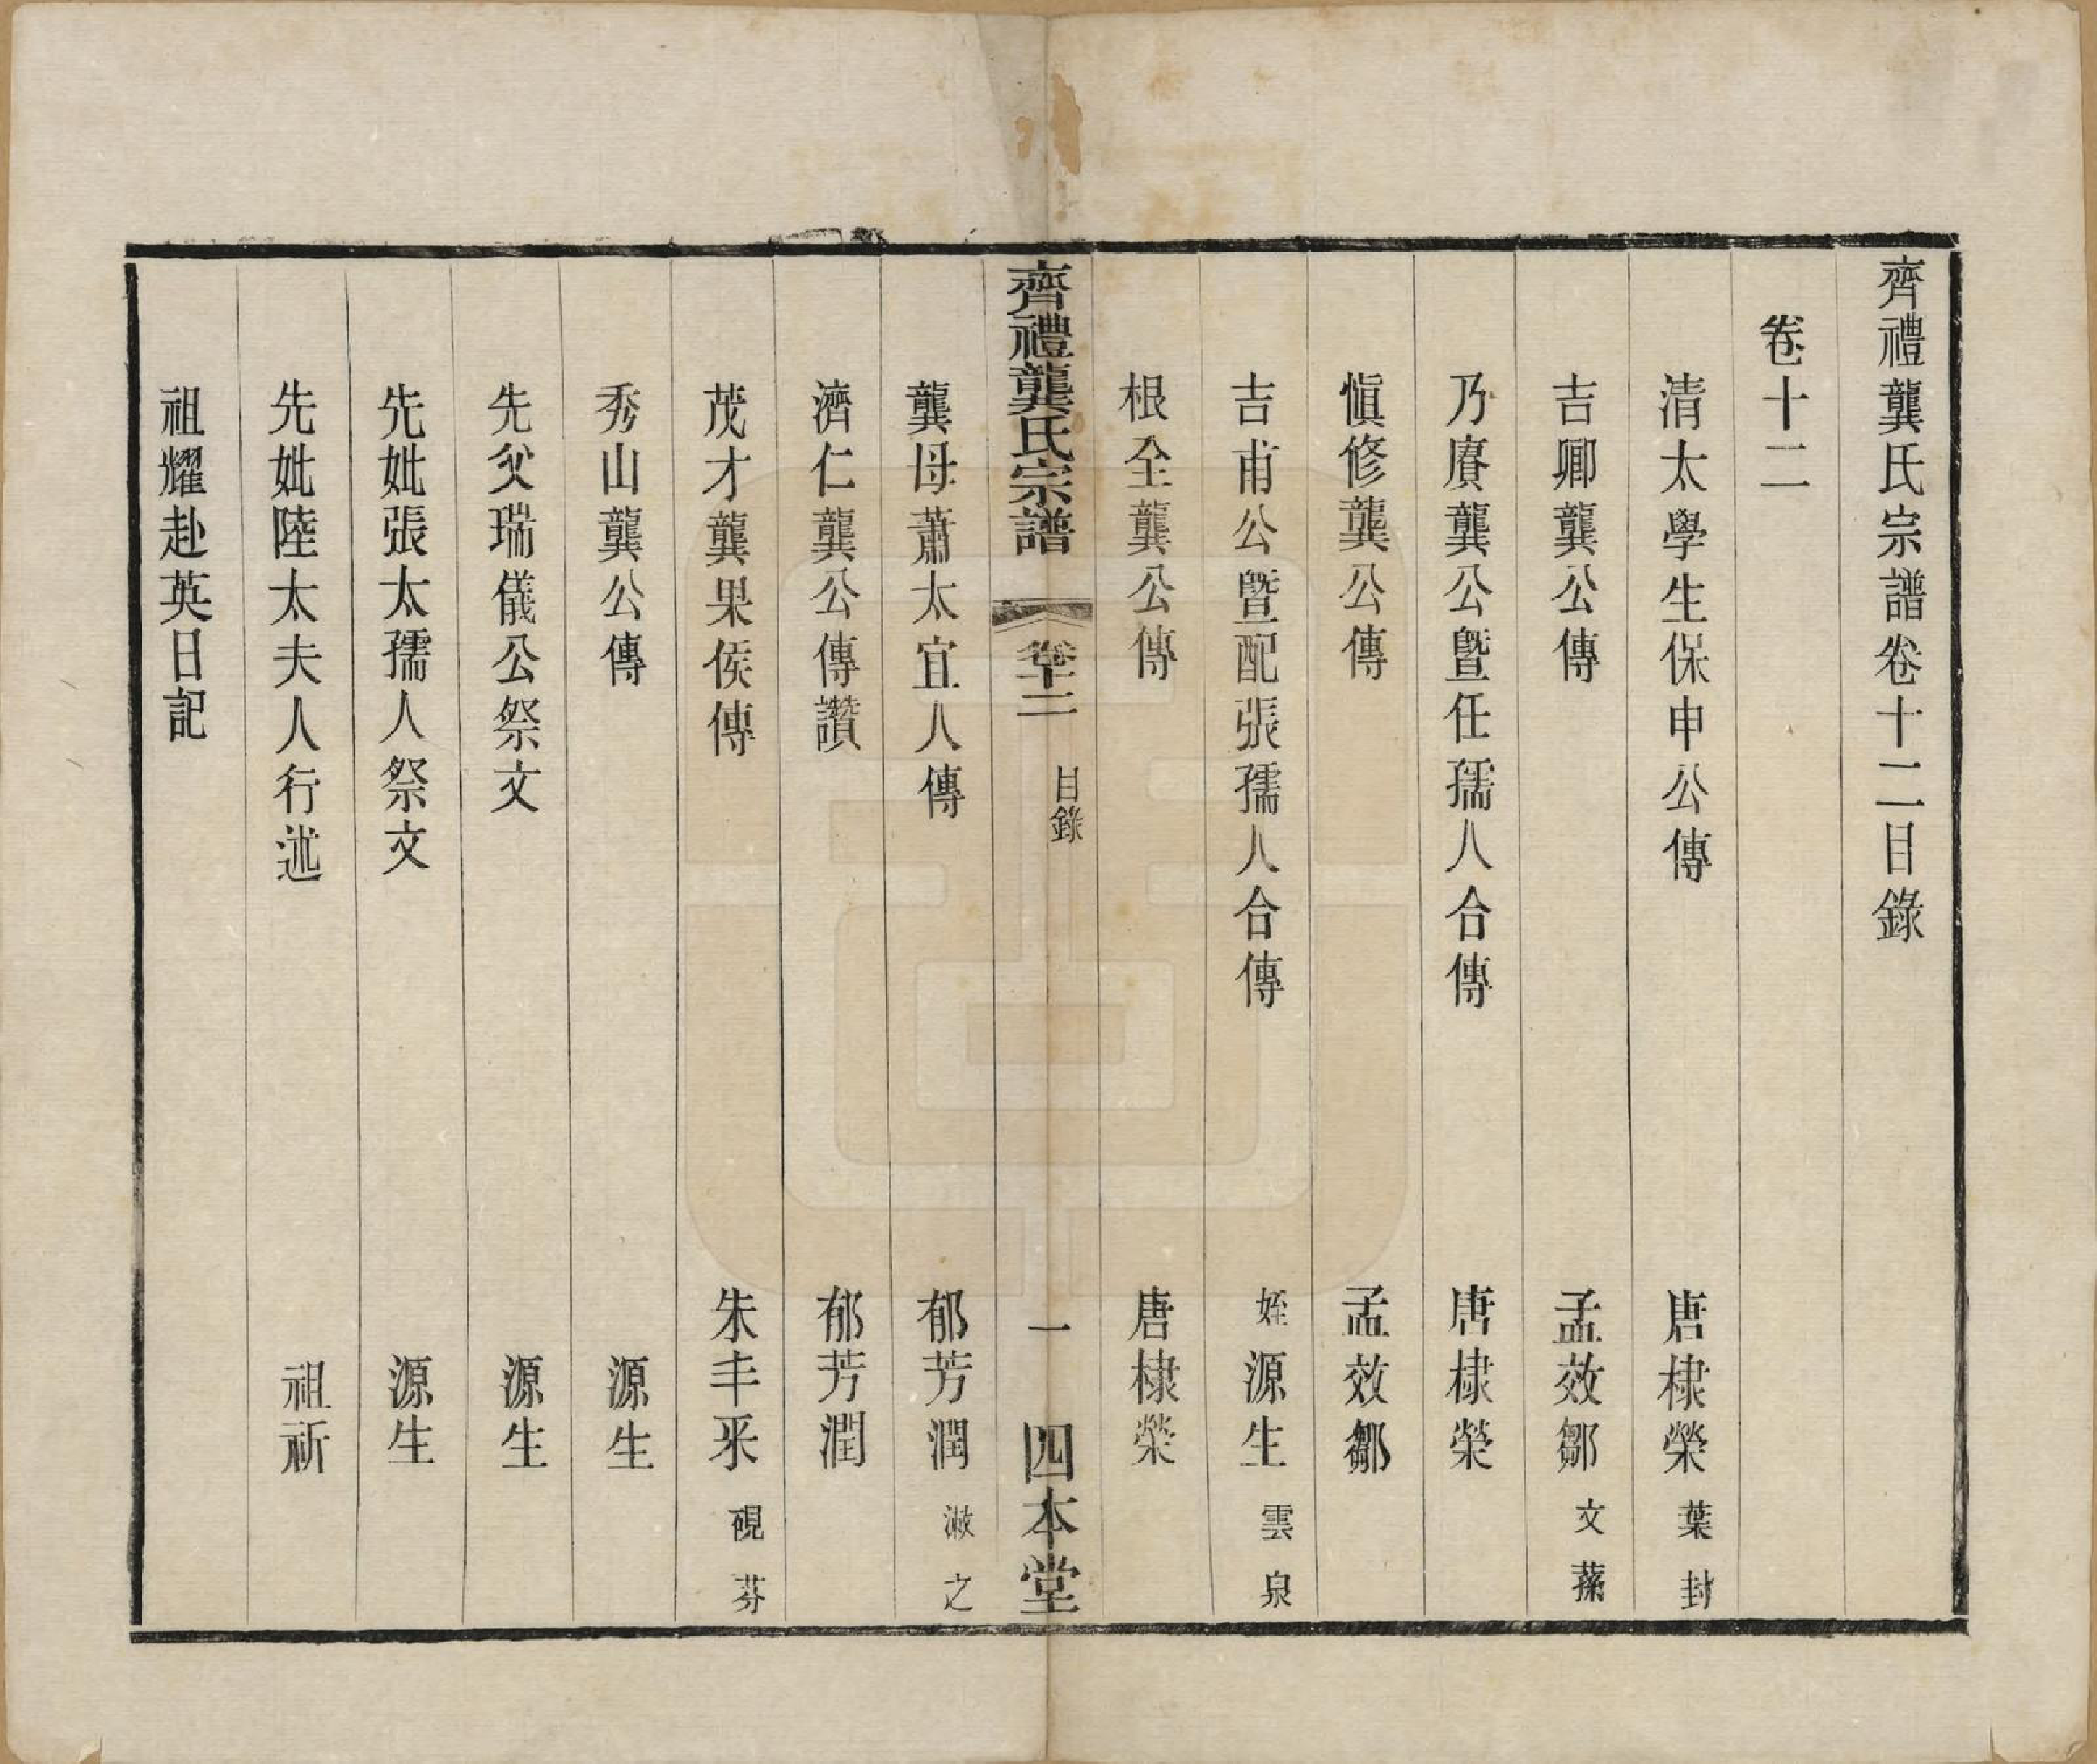 齊禮龔氏宗譜卷十二目錄
卷十二
清太學生保申公傳 唐棣榮 葉封
吉卿龔公傳 孟效鄒 文蓀
乃賡龔公曁任孺人合傳 唐棣榮
愼修龔公傳 孟效鄒
吉甫公曁配張孺人合傳 姪源生 雲泉
根全龔公傳 唐棣榮
齊禮龔氏宗譜 卷十二 目錄 一 四本堂
龔母蕭太宜人傳 郁芳潤 漱之
濟仁龔公傳讚 郁芳潤
茂才龔果侯傳 朱丰采 硯芬
秀山龔公傳 源生
先父瑞儀公祭文 源生
先妣張太孺人祭文 源生
先妣陸太夫人行述 祖祈
祖耀赴英日記